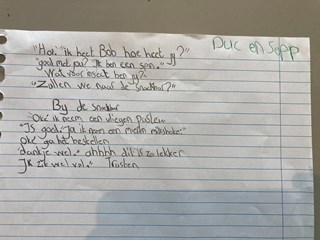 Duc en Sepp
"Hoi" ik heet Bob hoe heet jij?"
"gaat met jou? Ik ben een spin."
Wat voor ben jij?"
"Zullen we naar de snackbar?"
By de snackbar
"Oke ik neem een vliegen
"Is goed." Ja ik neem een milkshake."
oke ga het bestellen
dankje wel." ahhhh dit is zo lekker
Ik zit wel vol."